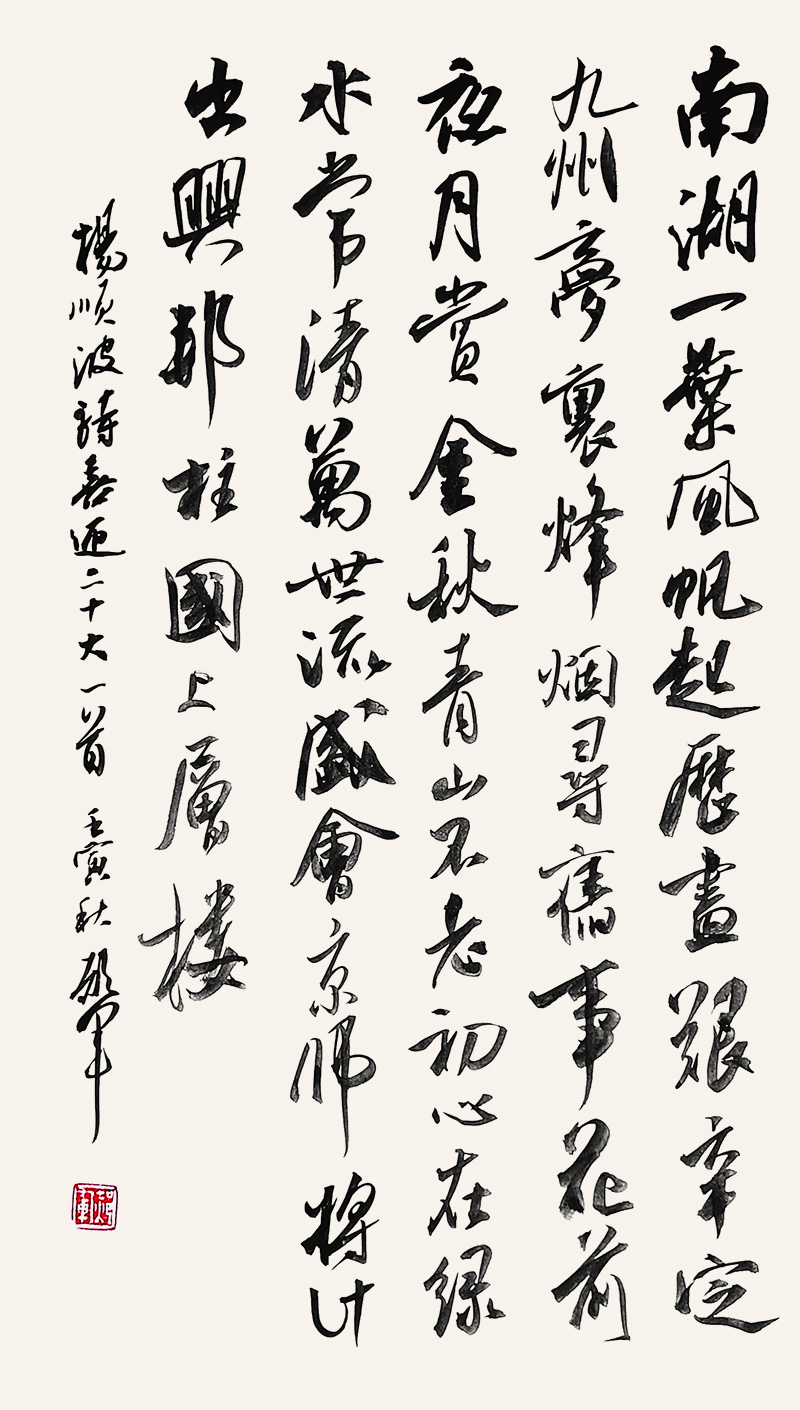 南湖一葉風帆起歷盡艱辛定
九州夢裏烽烟尋舊事花前
夜月賞金秋青山不老初心在綠
水常清萬世流盛會京師將計
出興邦柱國上層樓
楊順波詩喜迎二十大一首 壬寅秋